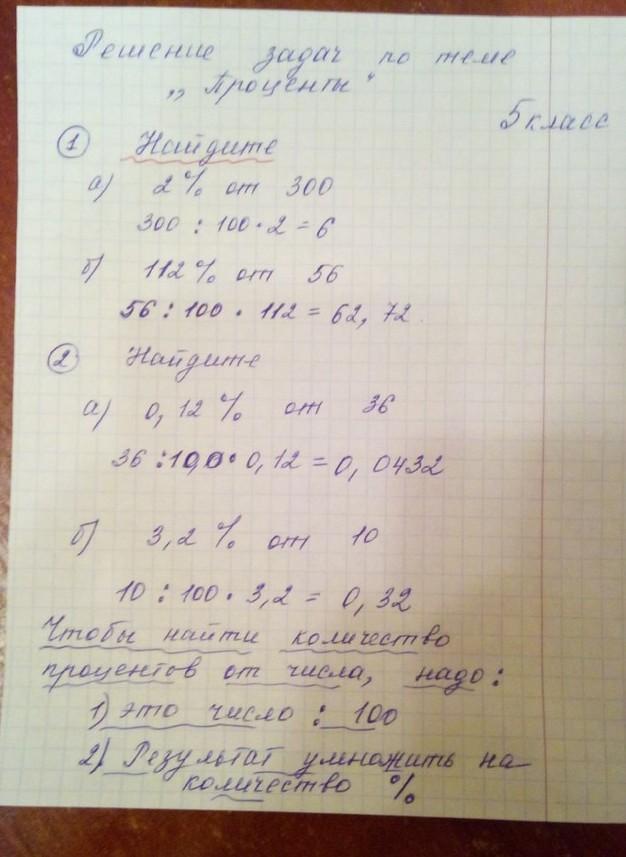 Решение задач по теме
„Проценты"
5 класс
① Найдите
а) 2% от 300
300 : 100 · 2 = 6
б) 112% от 56
56 : 100 · 112 = 62,72.
② Найдите
а) 0,12% от 36
36 : 100 · 0,12 = 0,0432
б) 3,2% от 10
10 : 100 · 3,2 = 0,32
Чтобы найти количество
процентов от числа, надо:
1) это число : 100
2) Результат умножить на
количество %